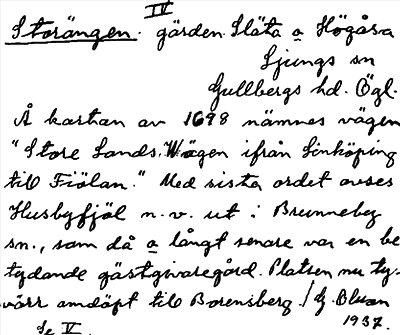 IV
Storängen. gärden Släta o Högåsa
Ljungs sn
Gullbergs hd. Ögl.
Å kartan av 1698 nämnes vägen
"Store Lands Wägen ifrån Linköping
till Fiölan." Med sista ordet avses
Husbyfjöl n. v. ut i Brunneby
sn., som då o långt senare var en be
tydande gästgivaregård. Platsen nu ty-
värr omdöpt till Borensberg. / G.
1937.
Se V.